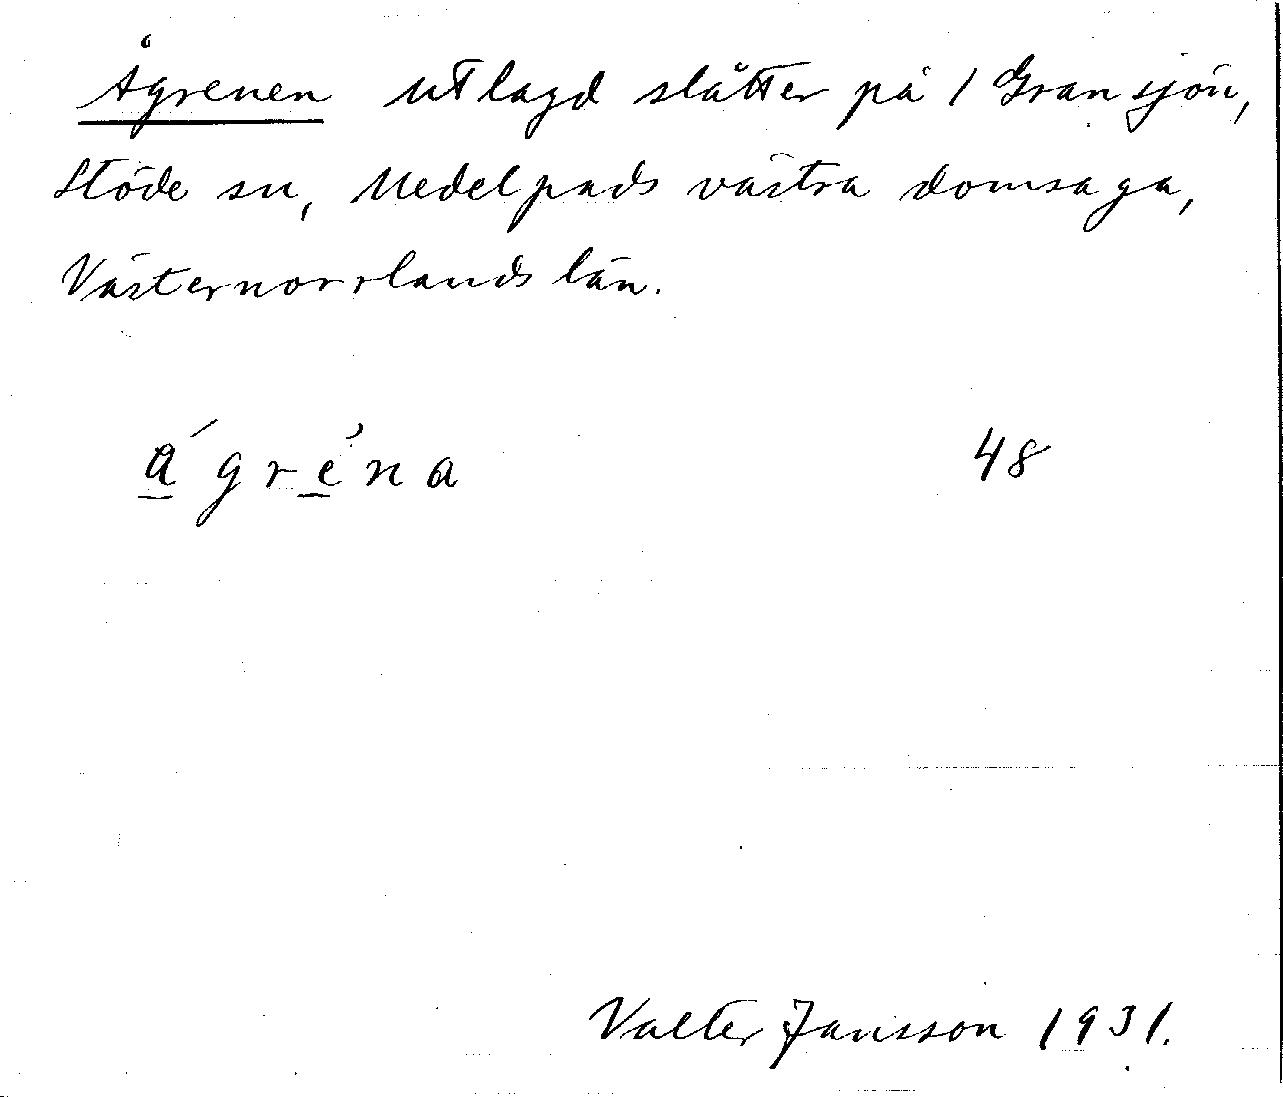 Ågrenen utlagd slåtter på 1 Gransjön,
Stöde sn, Medelpads västra domsaga,
Västernorrlands län.
a̲´ gre̲̓na 48
Valter Jansson 1931.